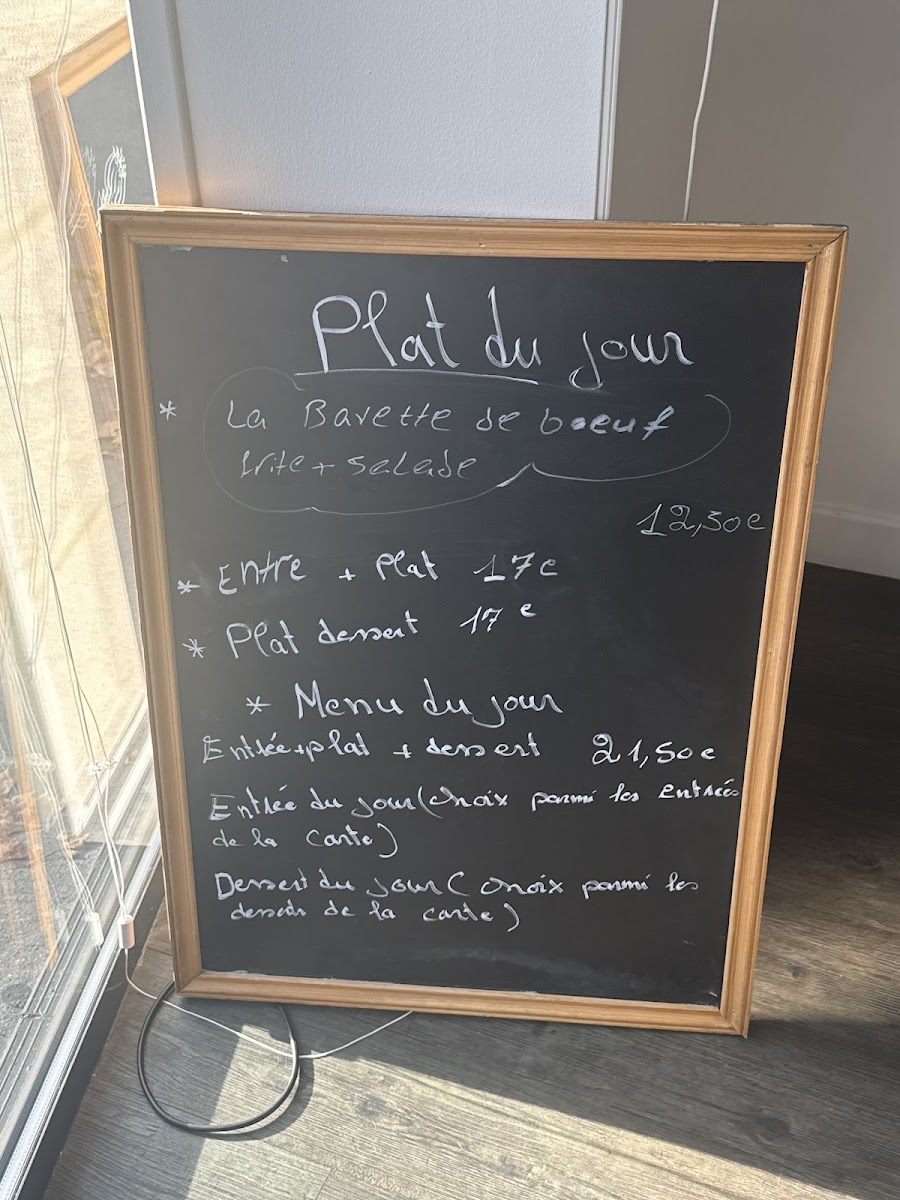 Plat du jour
* La Bavette de boeuf
frite + salade
12,50€
* Entre + Plat 17€
* Plat dessert 17€
* Menu du jour
Entrée+plat + dessert 21,50€
Entrée du jour (choix parmi les entrées
de la carte)
Dessert du jour (choix parmi les
desserts de la carte)